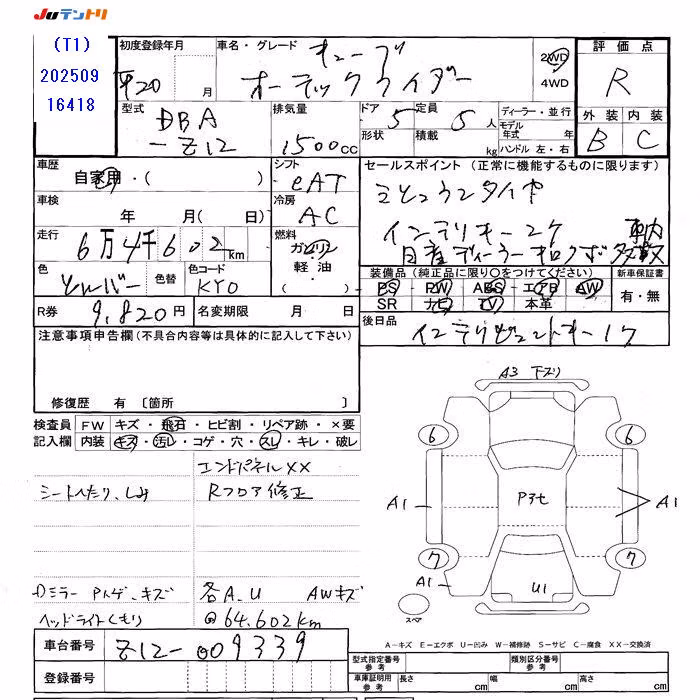 JUテントリ
(T1)
202509
16418
初度登録年月
平20 月
車名・グレード
キューブ
オーテックライダー
2WD
4WD
評価点
R
外装 内装
B C
型式
DBA
-Z12
排気量
1500cc
ドア 5
形状
定員 5人
積載 kg
ディーラー・並行
モデル年式 年
ハンドル 左・右
車歴
自家用・( )
シフト
eAT
車検
年 月( 日)
冷房
AC
走行
6万4千602km
燃料
ガソリン
軽油・
( )
色
シルバー
色替
色コード
KY0
R券
9,820円
名変期限 月 日
セールスポイント (正常に機能するものに限ります)
インテリキー2ケ 車内
日産ディーラー 多数
装備品 (純正品に限り○をつけてください)
PS・PW・ABS・エアB・AW
SR ナビ TV 本革
新車保証書
有・無
後日品
注意事項申告欄 (不具合内容等は具体的に記入して下さい)
修復歴 有 〔箇所 〕
検査員
記入欄
FW キズ・飛石・ヒビ割・リペア跡・×要
内装 キズ・汚レ・コゲ・穴・スレ・キレ・破レ
エンドパネルXX
シートへたり、しみ
Rフロア修正
Dミラー Pトゲ、キズ
各A.U AWキズ
ヘッドライトくもり
@64.602km
車台番号
Z12-009339
登録番号
A3 下ズリ
6
6
A1
P3セ
A1
7
7
A1
U1
スペア
A-キズ E-エクボ U-凹み W-補修跡 S-サビ C-腐食 XX-交換済
型式指定番号
参考
類別区分番号
参考
車庫証明用
参考
長さ cm
幅 cm
高さ cm